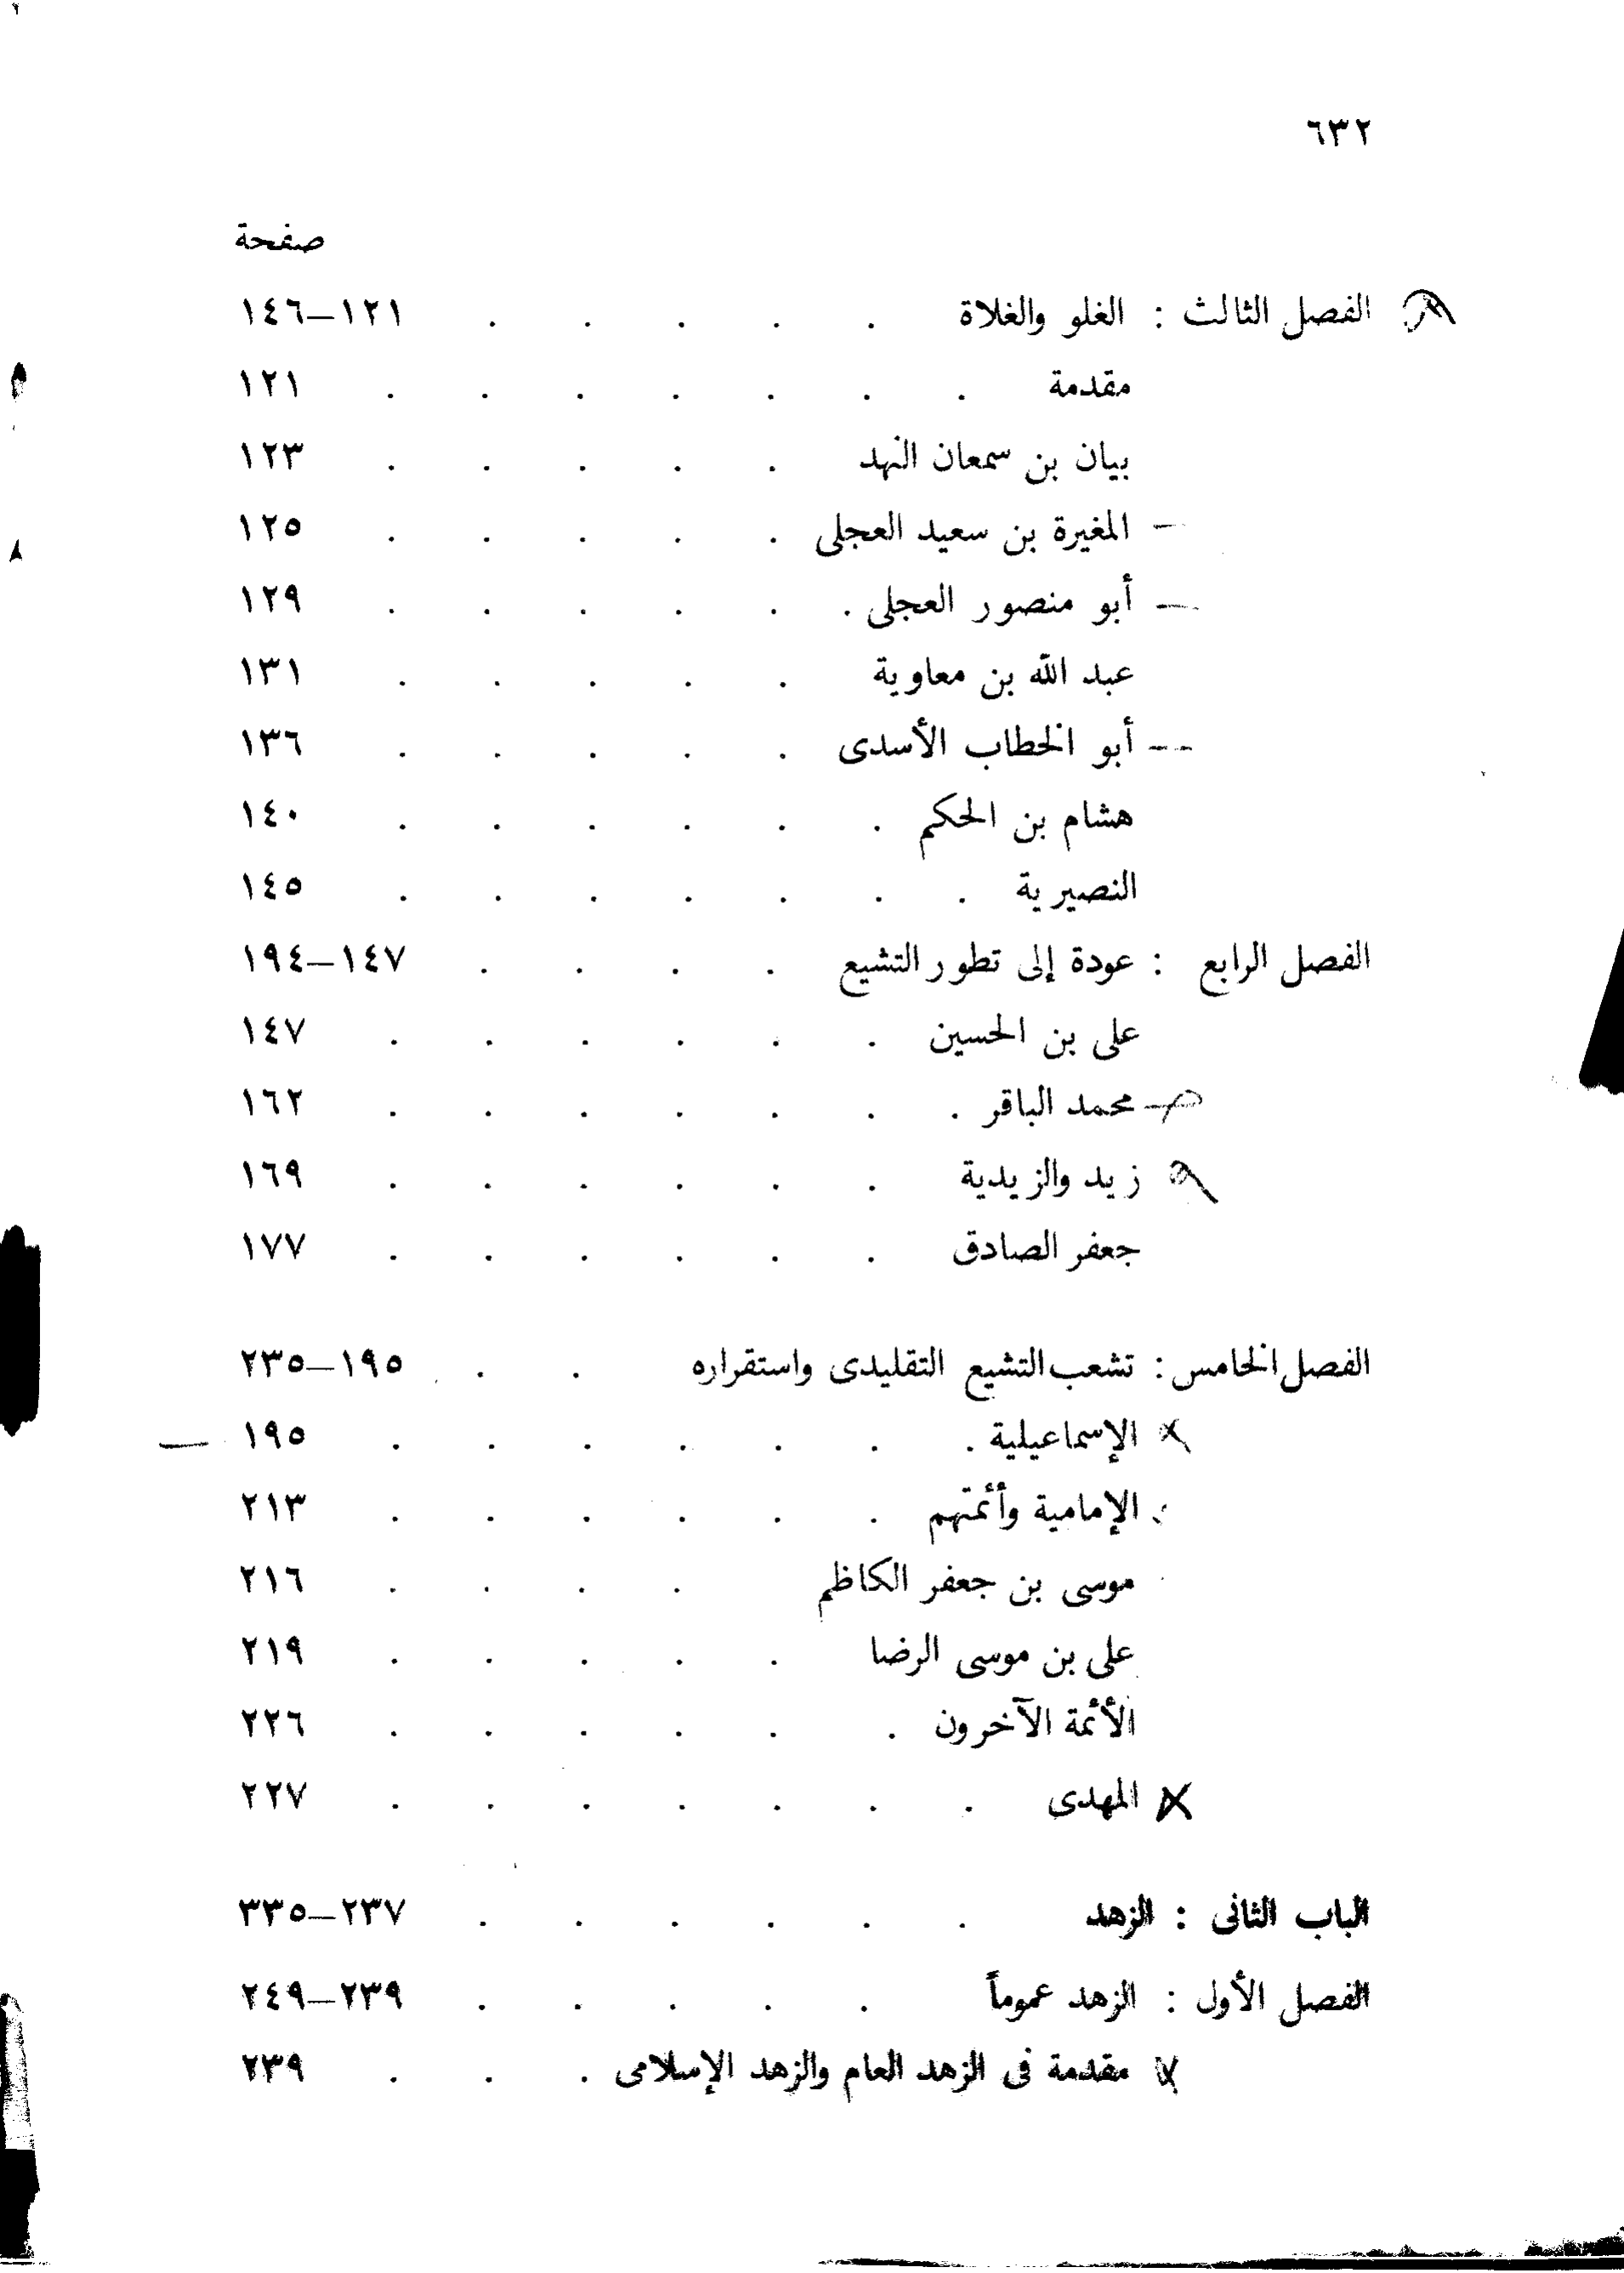 ٦٣٢
صفحة
الفصل الثالث : الغلو والغلاة . . . . . ١٢١–١٤٦
مقدمة . . . . . . . ١٢١
بيان بن سمعان النهد . . . . . ١٢٣
المغيرة بن سعيد العجلى . . . . . ١٢٥
أبو منصور العجلى . . . . . . ١٢٩
عبد الله بن معاوية . . . . . ١٣١
أبو الخطاب الأسدى . . . . . ١٣٦
هشام بن الحكم . . . . . . ١٤٠
النصيرية . . . . . . . ١٤٥
الفصل الرابع : عودة إلى تطور التشيع . . . . ١٤٧–١٩٤
على بن الحسين . . . . . . ١٤٧
محمد الباقر . . . . . . . ١٦٢
زيد والزيدية . . . . . . ١٦٩
جعفر الصادق . . . . . . ١٧٧
الفصل الخامس : تشعب التشيع التقليدى واستقراره . . ١٩٥–٢٣٥
الإسماعيلية . . . . . . . ١٩٥
الإمامية وأئمتهم . . . . . . ٢١٣
موسى بن جعفر الكاظم . . . . ٢١٦
على بن موسى الرضا . . . . . ٢١٩
الأئمة الآخرون . . . . . . ٢٢٦
المهدى . . . . . . . ٢٢٧
الباب الثانى : الزهد . . . . . . ٢٣٧–٣٣٥
الفصل الأول : الزهد عموماً . . . . . ٢٣٩–٢٤٩
مقدمة فى الزهد العام والزهد الإسلامى . . . ٢٣٩